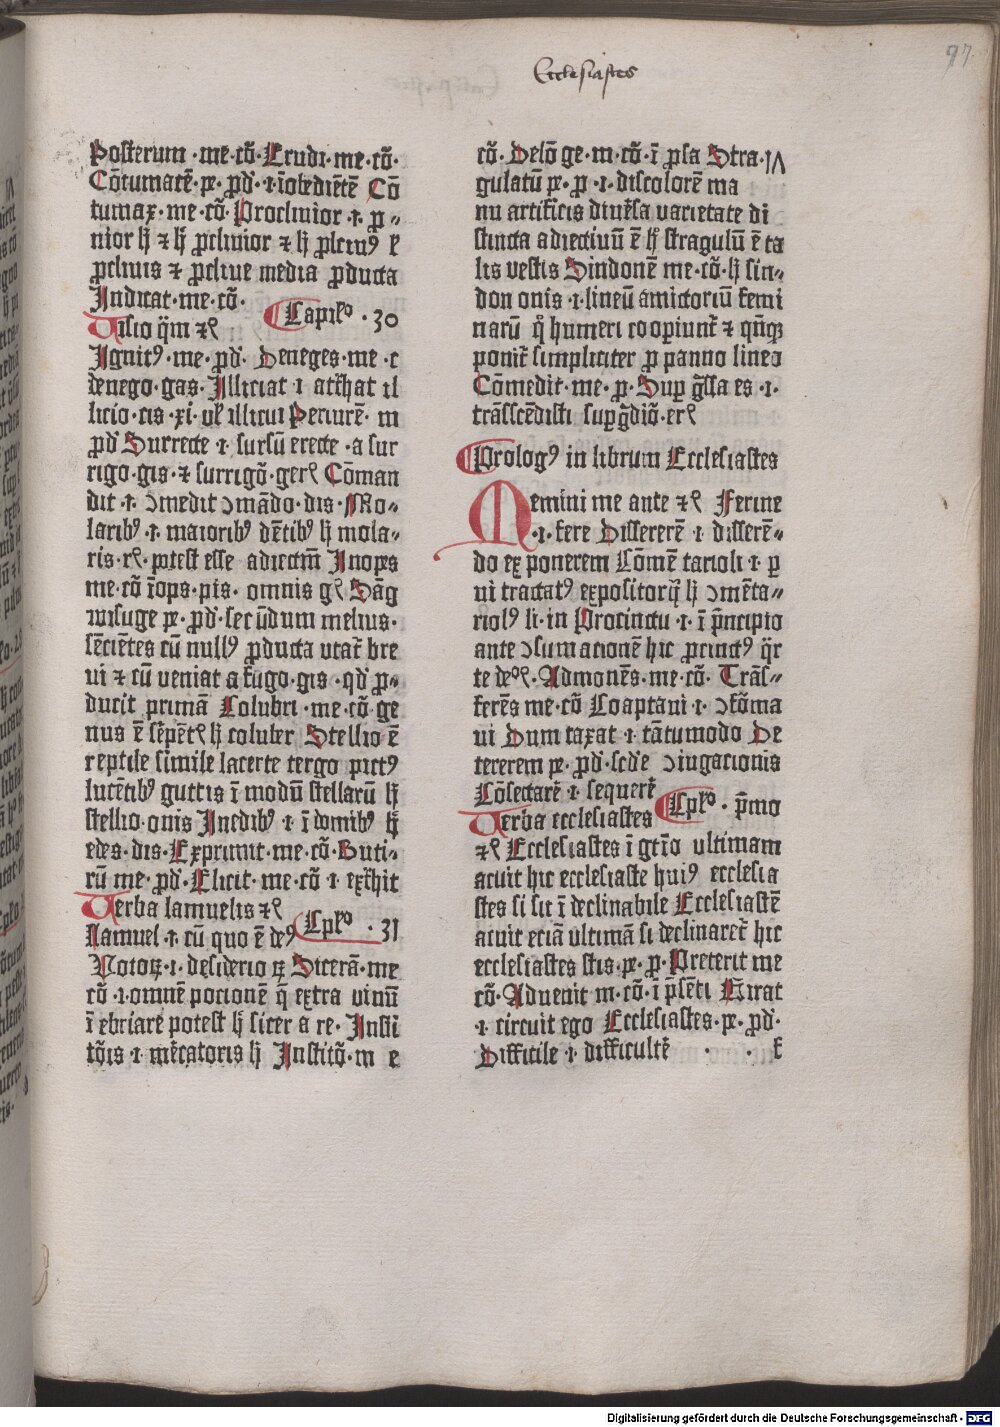 Ecclesiastes
97
Posterum ·me·cō· Erudi·me·cō·
Cōtumacē·pe·pd̄·i·īobediētē Cō
tumax·me·cō· Proclinior·i·p̱-
nior h̄ ⁊ h̄ p̱clinior ⁊ h̄ p̱cliuꝰ
p̱cliuis ⁊ p̱cliue media p̱ducta
Indicat·me·cō·
Capi⁰ ·30
Visio q̄m ⁊c̄
Ignitꝰ·me·pd̄· Deneges·me·e
denego·gas· Illiciat i at͛hat il
licio·cis·xi· ul̄ illicui Periurē· m
pd̄ Surrecte·i·sursū erecte·a sur
rigo·gis·⁊ surrigō·gerꝭ Cōman
dit·i·ꝯmedit ꝯmādo·dis·Mo-
laribꝰ·i·maioribꝰ dētibꝰ h̄ mola-
ris·rꝭ·ptest esse adiectm̄ Inops
me·cō īops·pis·omnis gꝭ Sāg
wisuge pe·pd̄·secūdum melius·
sēciētes cū nullꝰ p̱ducta utat͛ bre
ui ⁊ cū veniat a fugo·gis·qd̄ p̱-
ducit primā Colubri·me·cō·ge
nus ē sēpētꝭ h̄ coluber Stellio ē
reptile simile lacerte tergo pictꝰ
lucētibꝰ guttis ī modū stellarū h̄
stellio·onis Inedibꝰ·i·ī domibꝰ h̄
edes·dis· Exprimit·me·cō· Buti-
rū me·pd̄· Elicit·me·cō·i ext͛hit
Verba lamuelis ⁊c̄
Cpl⁰ ·31
Lamuel·i·cū quo ē deꝰ
Votoꝝ·i·desiderioꝝ Sicerā·me
cō·i·omnē pocionē q̄ extra vinū
ī ebriare potest h̄ sicera re· Insti
tōis·i·mēcatoris h̄ Institō·m e
cō· Delō ge·m·cō·ī p̱sa Stra-
gulatū pe·p̱·i·discolorē ma
nu artificis diu͛sa varietate di
stincta adiectiuū ē h̄ stragulū ē ta
lis vestis Sindonē me·cō·h̄ sin-
don onis·i·lineū amictoriū femi
narū q̊ humeri cooperiunt͛ ⁊ qn̄qꝫ
ponit͛ simpliciter p̱ panno lineo
Cōmedit·me·p̱· Sup̱ g̃ssa es·i·
trāsscēdisti sup̱g̃diō·erꝭ
Prologꝰ in librum Ecclesiastes
Memini me ante ⁊c̄ Ferme
·i·fere Dissererē·i·disserē-
do exponerem Cōmētarioli·i·p̱
ui tractatꝰ expositorij h̄ ꝯmēta-
riolꝰ li·in Procinctu·i·ī p̄ncipio
ante ꝯsumacionē hic p̱cinctꝰ q̄r
te deᵒꝭ· Admonēs·me·cō· Trās-
ferēs me·cō Coaptani·i·ꝯfōma
ui Dum taxat·i·tātumodo De
tererem pe·pd̄·scd̄e ꝯiugacionis
Cōsectarē·i·sequerē
Cpl⁰ · p̄mo
Verba ecclesiastes
⁊c̄ Ecclesiastes ī gt͛io ultimam
acuit hic ecclesiaste huiꝰ ecclesia
stes si sit ī declinabile Ecclesiastē
acuit eciā ultimā si declinaret͛ hic
ecclesiastes stis·pe·p̱· Preterit me
cō· Aduenit m·cō·i p̄sēti Girat
·i·circuit ego Ecclesiastes·pe·pd̄·
Difficile·i·difficultē ·
Digitalisierung gefördert durch die Deutsche Forschungsgemeinschaft - DFG